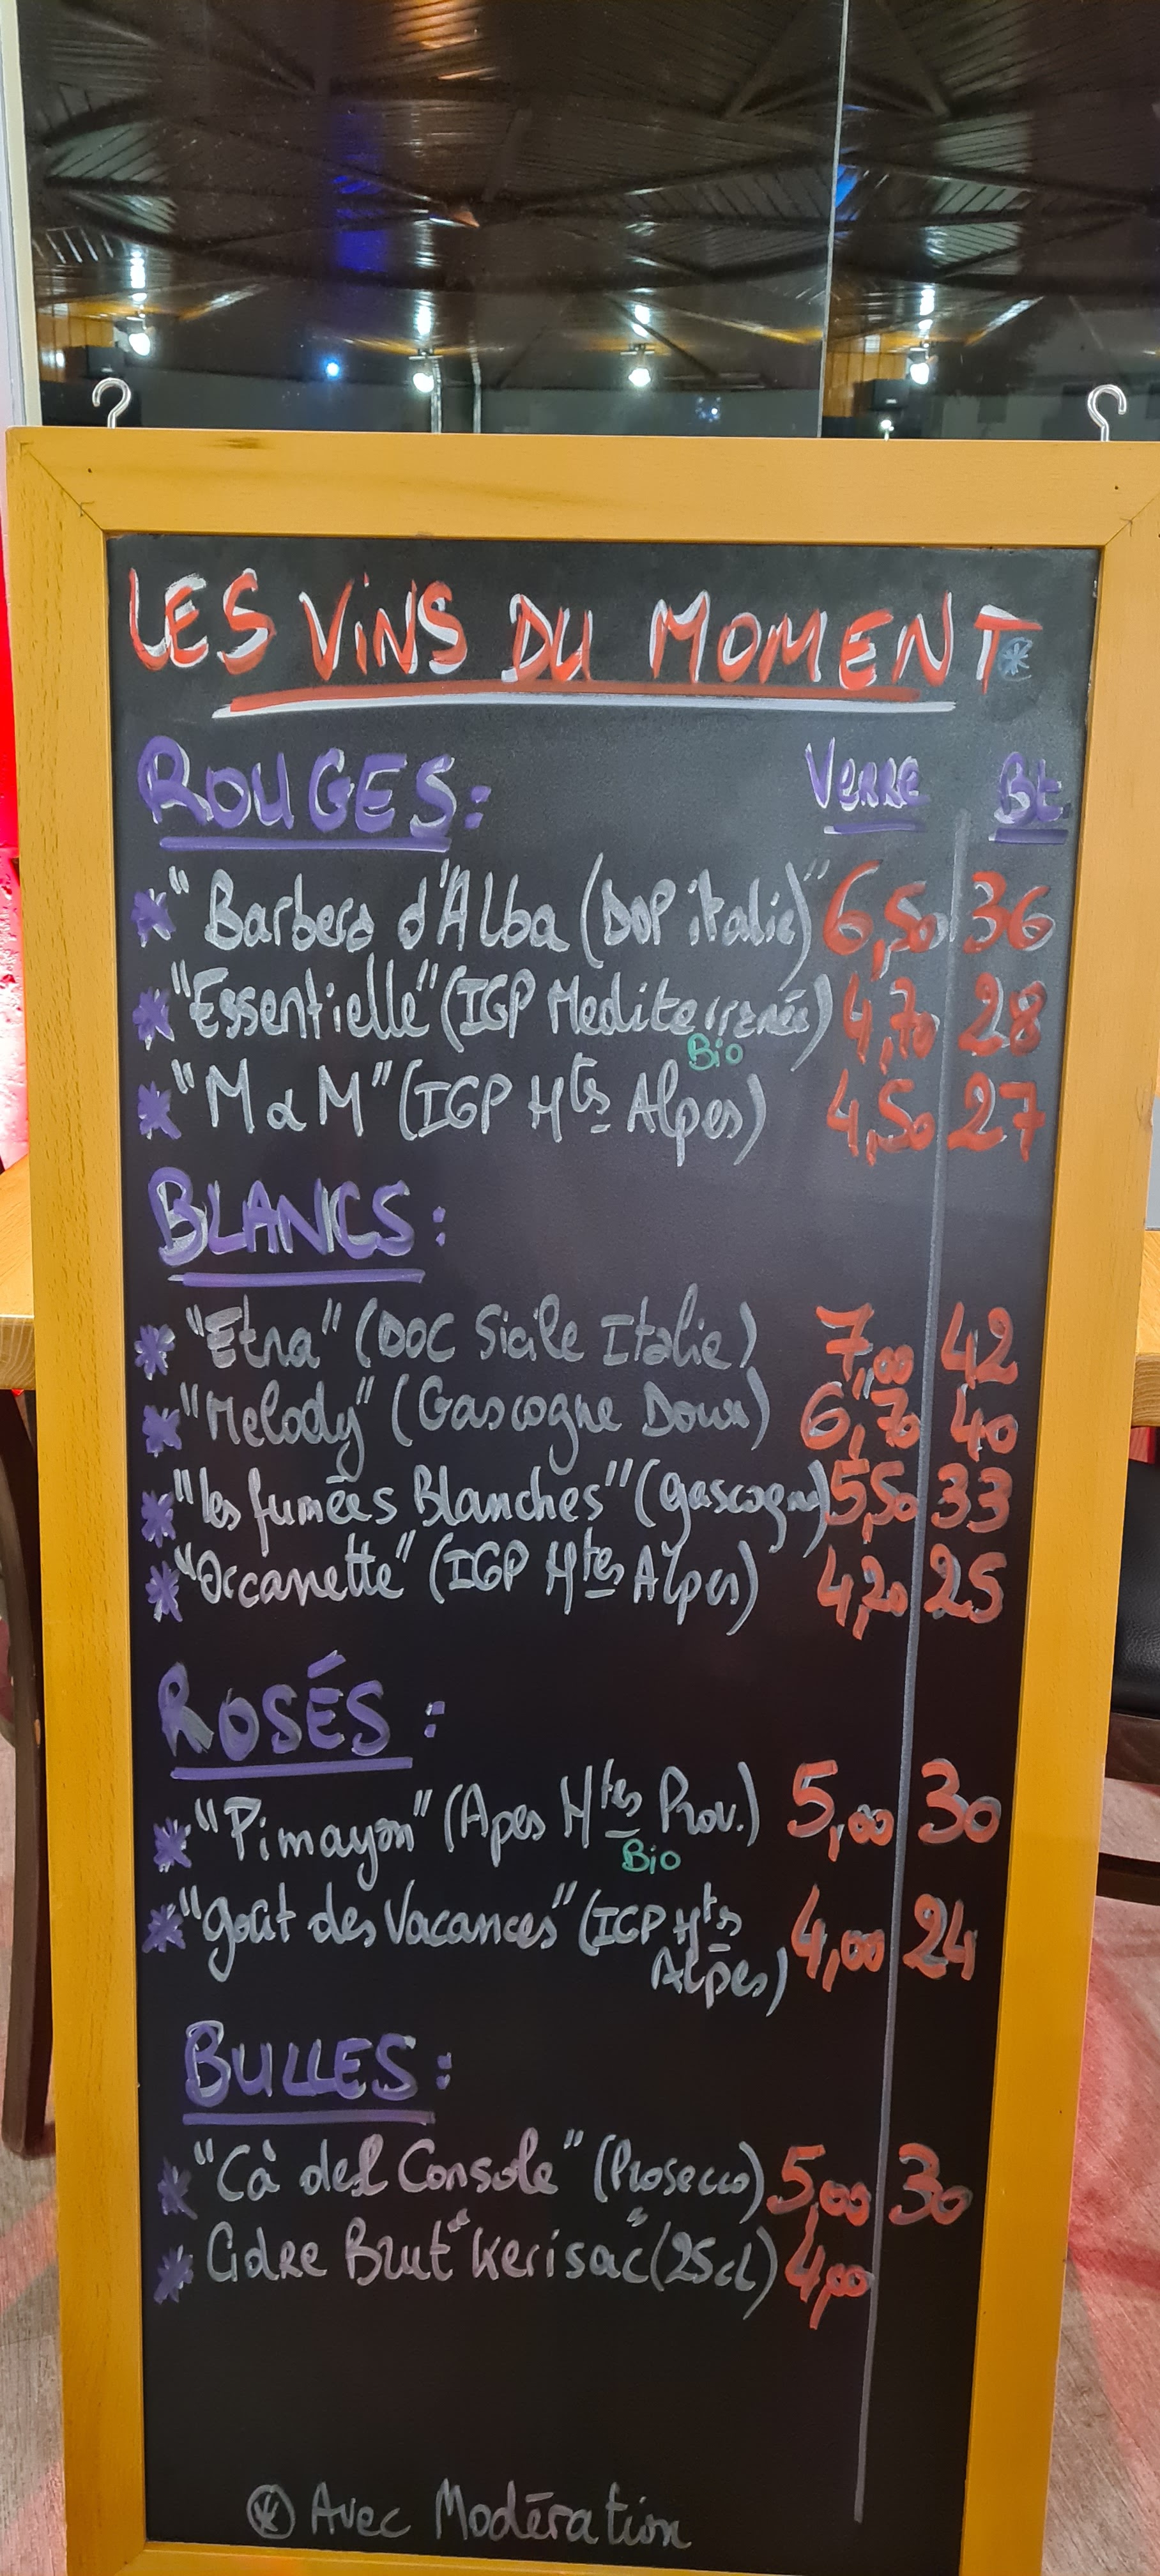 LES ViNS DU MOMENT*
ROUGES: VERRE Bt.
* "Barbera d'Alba (DOP italie)" 6,50 36
* "Essentielle" (IGP Mediterrenée) 4,70 28
Bio
* "M & M" (IGP Htes Alpes) 4,50 27
BLANCS:
* "Etna" (DOC Sicile Italie) 7,00 42
* "Melody" (Gascogne Doux) 6,70 40
* "les fumées Blanches" (gascogne) 5,50 33
* "Occanette" (IGP Htes Alpes) 4,20 25
ROSÉS:
* "Pimayon" (Apes Htes Prov.) 5,00 30
Bio
* "goût des Vacances" (IGP Hts 4,00 24
Alpes)
BULLES:
* "Cà del Console" (Prosecco) 5,00 30
* CidRe Brut "Kerisac" (25cl) 4,00
* Avec Modération